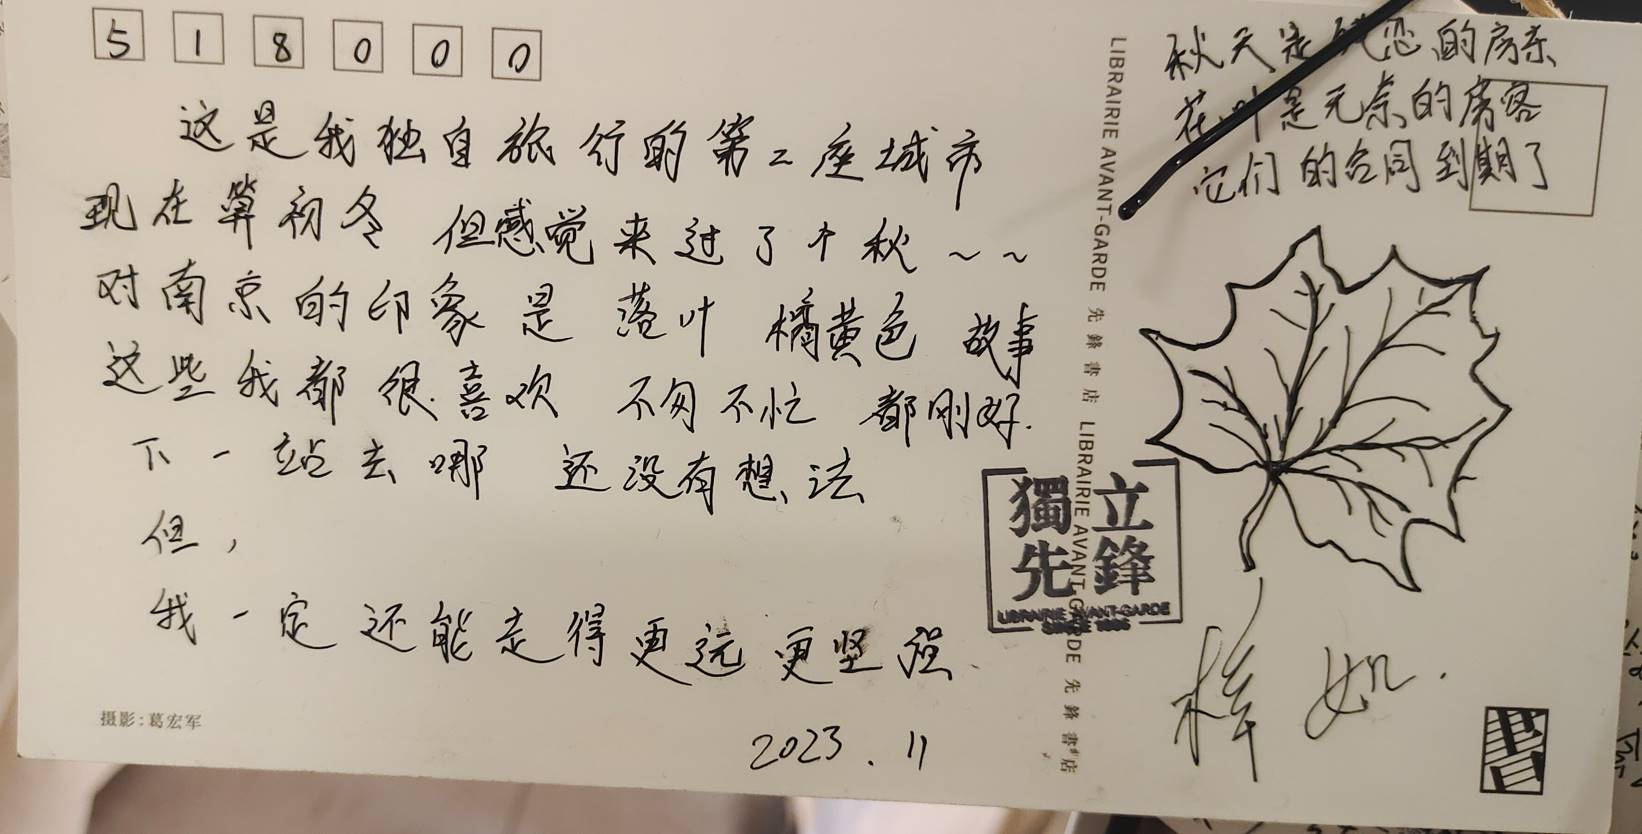 518000
这是我独自旅行的第二座城市
现在算初冬 但感觉来过了个秋~~
对南京的印象是 落叶 橘黄色 故事
这些我都很喜欢 不匆不忙 都刚好.
下一站去哪 还没有想法
但,
我一定还能走得更远更坚强.
2023.11
摄影:葛宏军
LIBRAIRIE AVANT-GARDE 先鋒書店 LIBRAIRIE AVANT-GARDE 先鋒書店
獨立
先鋒
LIBRAIRIE AVANT-GARDE
SINCE 1996
秋天是 恋的房东
花叶是无奈的房客
它们的合同到期了
如.